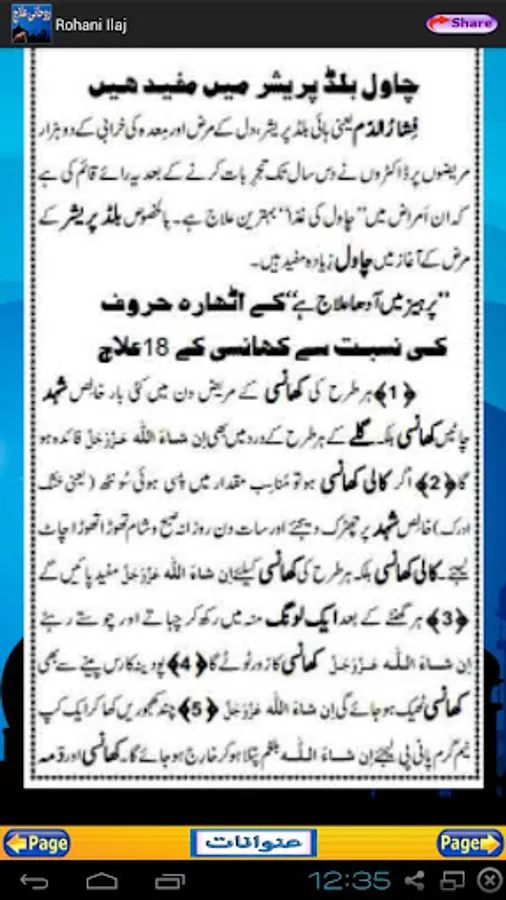 روحانی علاج
Rohani Ilaj
Share
چاول بلڈ پریشر میں مفید ھیں
فِشارُ الدّم یعنی ہائی بلڈ پریشر، دل کے مرض اور مِعدہ کی خرابی کے دو ہزار
مریضوں پر ڈاکٹروں نے دس سال تک تجرِبات کرنے کے بعد یہ رائے قائم کی ہے
کہ ان اَمراض میں ’’چاول کی غذا‘‘ بہترین علاج ہے۔ بالخصوص بلڈ پریشر کے
مرض کے آغاز میں چاول زیادہ مفید ہیں۔
’’پرہیز میں آدھا علاج ہے‘‘ کے اٹھارہ حروف
کی نسبت سے کھانسی کے 18 علاج
﴿1﴾ ہر طرح کی کھانسی کے مریض دن میں کئی بار خالِص شہد
چاٹیں کھانسی بلکہ گلے کے ہر طرح کے درد میں بھی اِن شاءَ اللہ عَزَّوَجَلَّ فائدہ ہو
گا ﴿2﴾ اگر کالی کھانسی ہو تو مُناسِب مقدار میں پِسی ہوئی سُونٹھ (یعنی خشک
ادرک) خالِص شہد پر چھڑک دیجئے اور سات دن روزانہ صبح و شام تھوڑا تھوڑا چاٹ
لیجئے۔ کالی کھانسی بلکہ ہر طرح کی کھانسی کیلئے اِن شاءَ اللہ عَزَّوَجَلَّ مفید پائیں گے
﴿3﴾ ہر گھنٹے کے بعد ایک لونگ منہ میں رکھ کر چباتے اور چوستے رہئے
اِن شاءَ اللہ عَزَّوَجَلَّ کھانسی کا زور ٹوٹے گا ﴿4﴾ پودینہ کا رس پینے سے بھی
کھانسی ٹھیک ہو جائے گی اِن شاءَ اللہ عَزَّوَجَلَّ ﴿5﴾ چند کھجوریں کھا کر ایک کپ
نیم گرم پانی پی لیجئے اِن شاءَ اللہ بلغم پتلا ہو کر خارج ہو جائے گا۔ کھانسی اور دَمہ
Page
عنوانات
Page
12:35